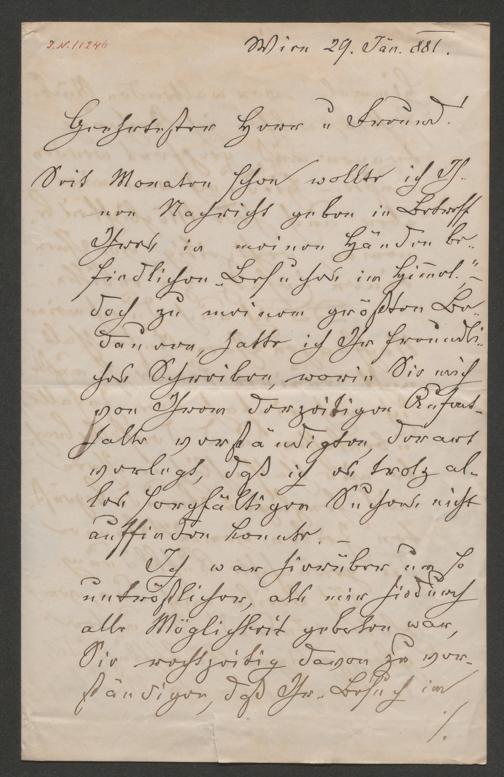 J.N. 11246
Wien 29. Jän. 881.
Geehrtester Herr u Freund!
Seit Monaten schon wollte ich Ih-
nen Nachricht geben in Betreff
Ihres in meinen Händen be-
findlichen „Besuches im Himmel", –
doch zu meinem größten Be-
dauern, hatte ich Ihr freundli-
ches Schreiben, worin Sie mich
von Ihrem derzeitigen Aufent-
halte verständigten, derart
verlegt, daß ich es trotz al-
les sorgfältigen Suchens nicht
auffinden konnte. –
Ich war hierüber um so
untröstlicher, als mir hiedurch
alle Möglichkeit geboten war,
Sie rechtzeitig davon zu ver-
ständigen, daß Ihr „Besuch im
/.